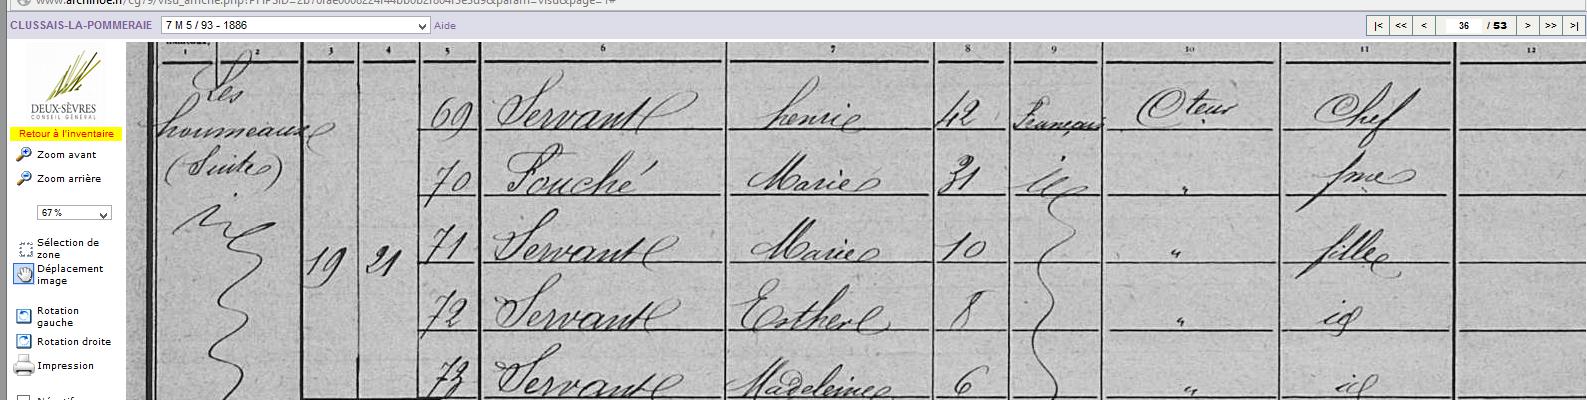 CLUSSAIS-LA-POMMERAIE 7 M 5 / 93 - 1886 Aide |< << < 36 / 53 > >> >|
1 2 3 4 5 6 7 8 9 10 11 12
DEUX-SÈVRES
CONSEIL GÉNÉRAL
Retour à l'inventaire
Zoom avant
Zoom arrière
67 %
Sélection de
zone
Déplacement
image
Rotation
gauche
Rotation droite
Impression
Les
houmeaux
(Suite)
69 Servant henri 42 Français Cteur Chef
70 Fouché Marie 31 id " fme
19 21 71 Servant Marie 10 " fille
72 Servant Esther 8 " id
73 Servant Madeleine 6 " id